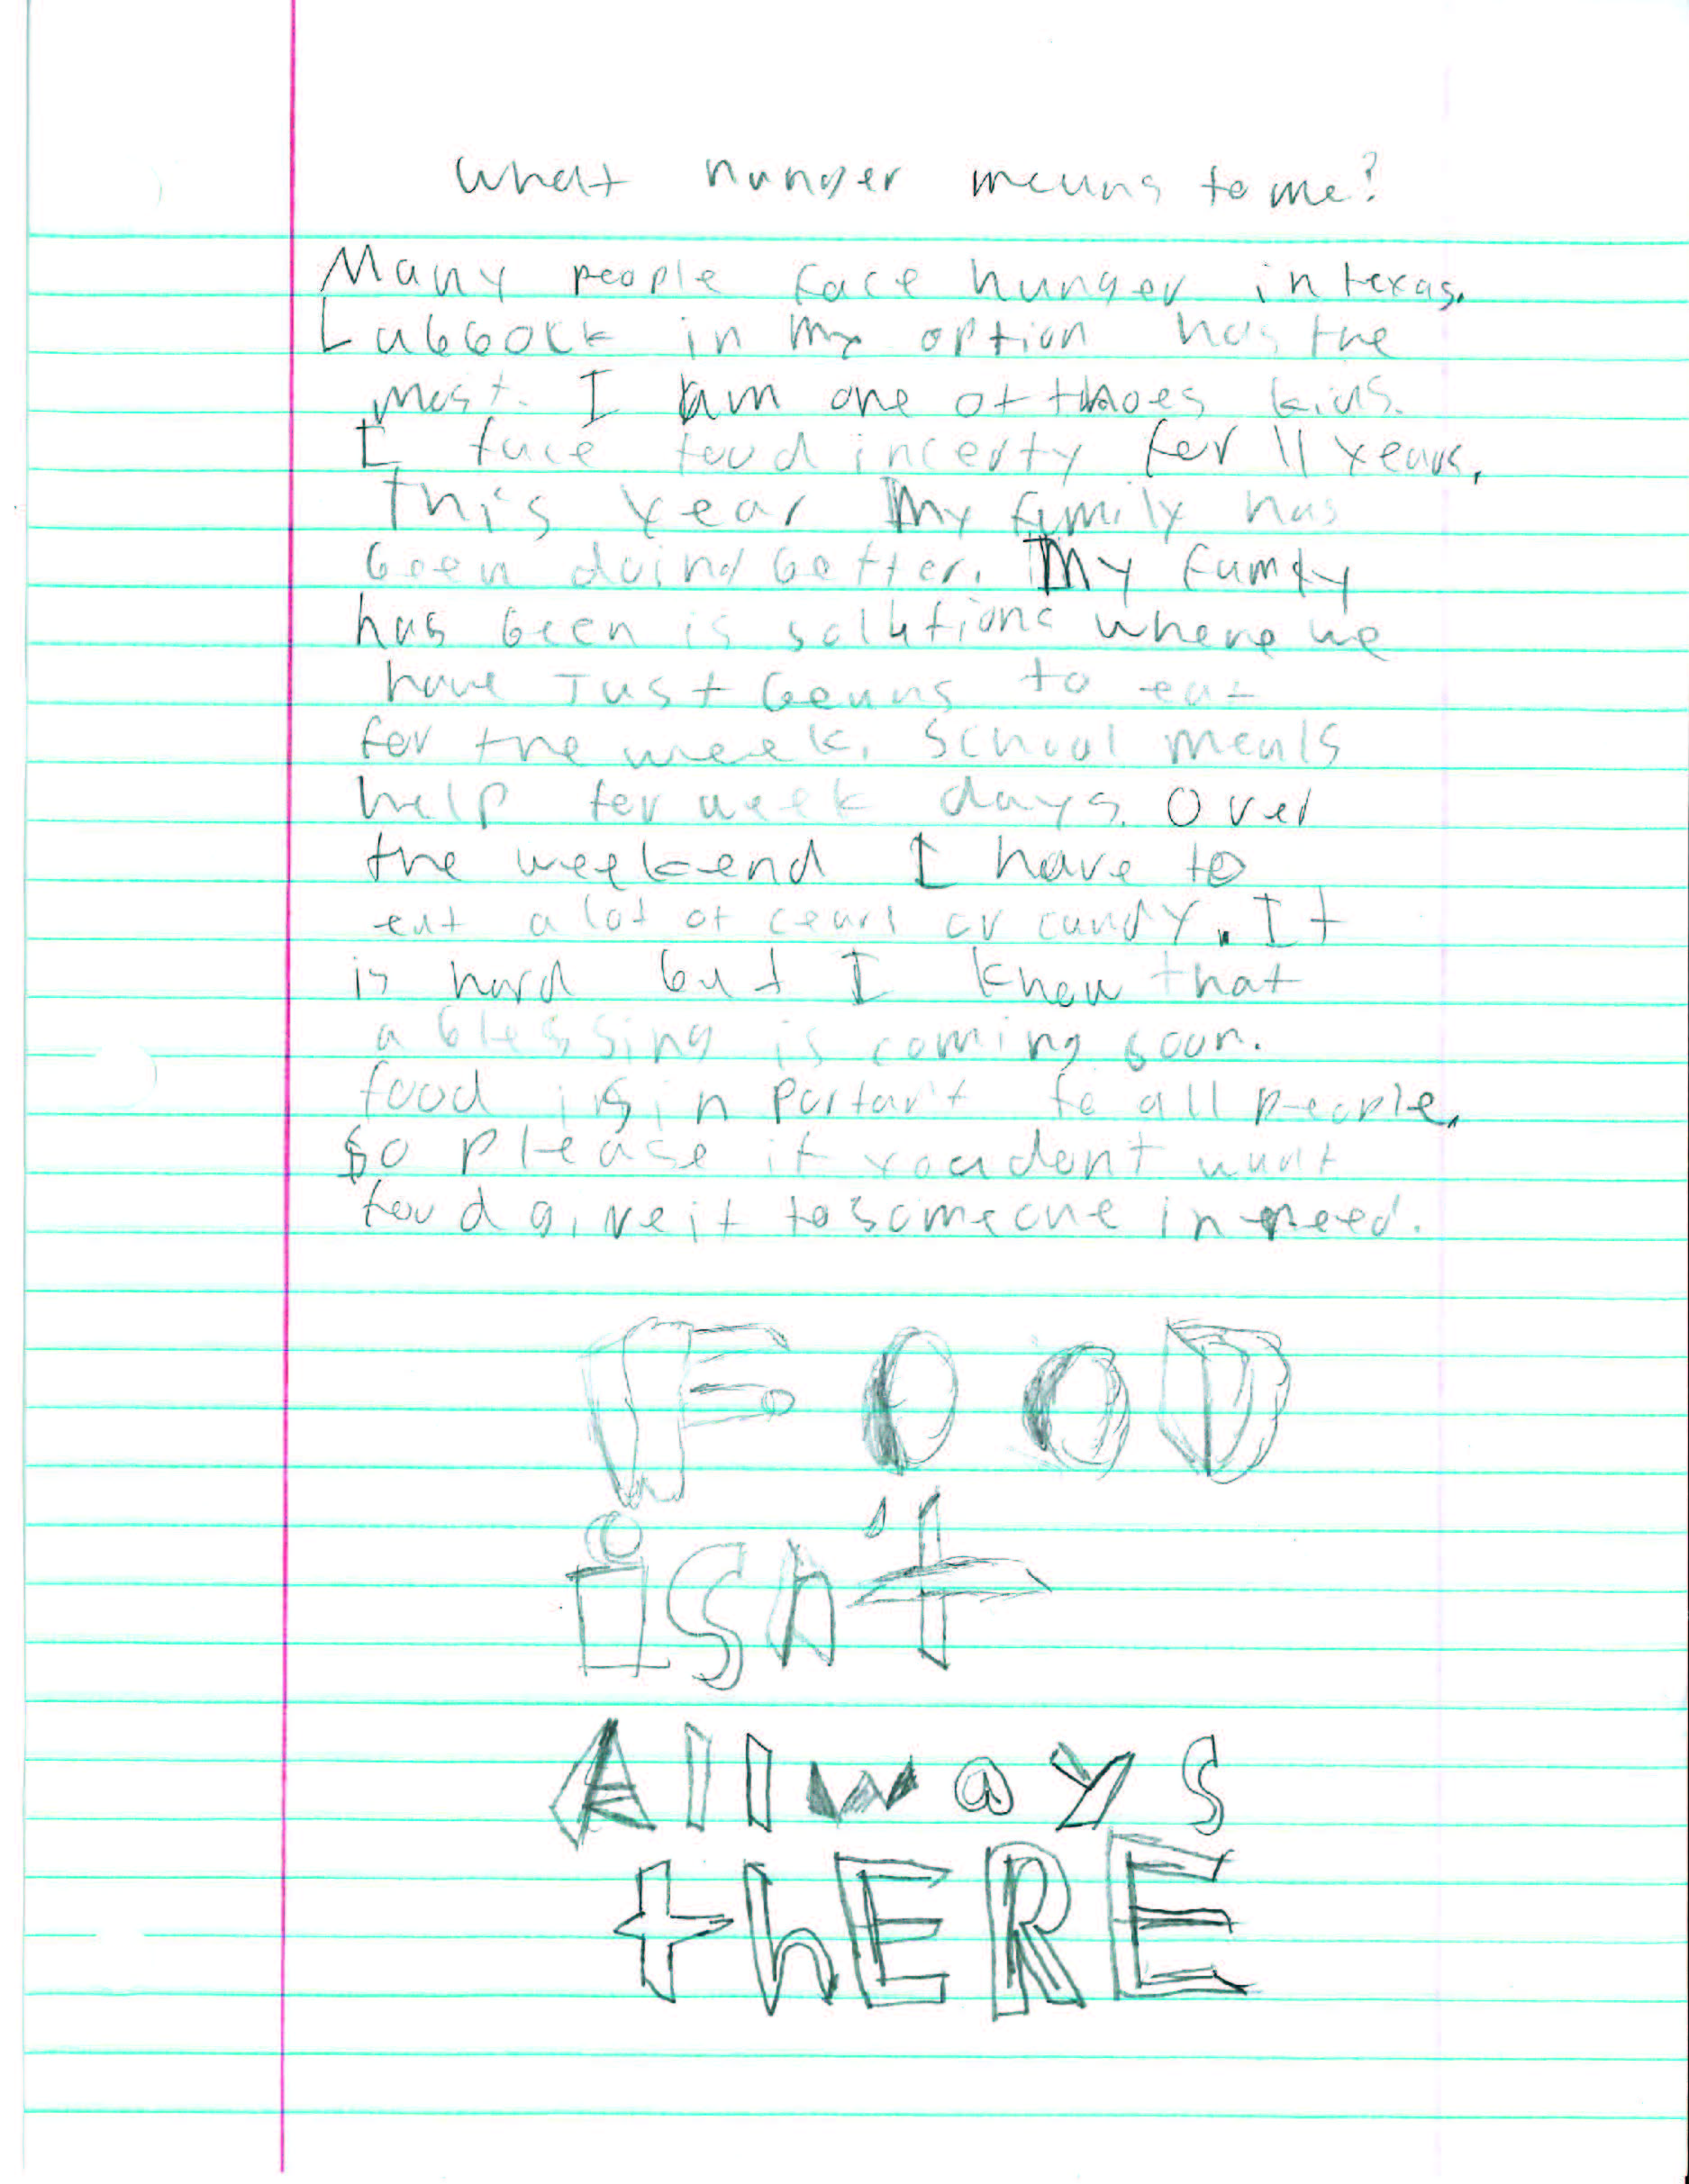 What hunger means to me?
Many people face hunger in texas.
Lubbock in my option has the
most. I am one of thoes kids.
I face food incerty for 11 years.
This year My family has
been doing better. My famly
has been is solutions where we
have Just beans to eat
for the week. School meals
help for week days. Over
the weekend I have to
eat a lot of cearl or candy. It
is hard but I know that
a blessing is coming soon.
food is in portant to all people.
So please if you dont want
food give it to someone in need.
FOOD
isn't
Allways
thERE